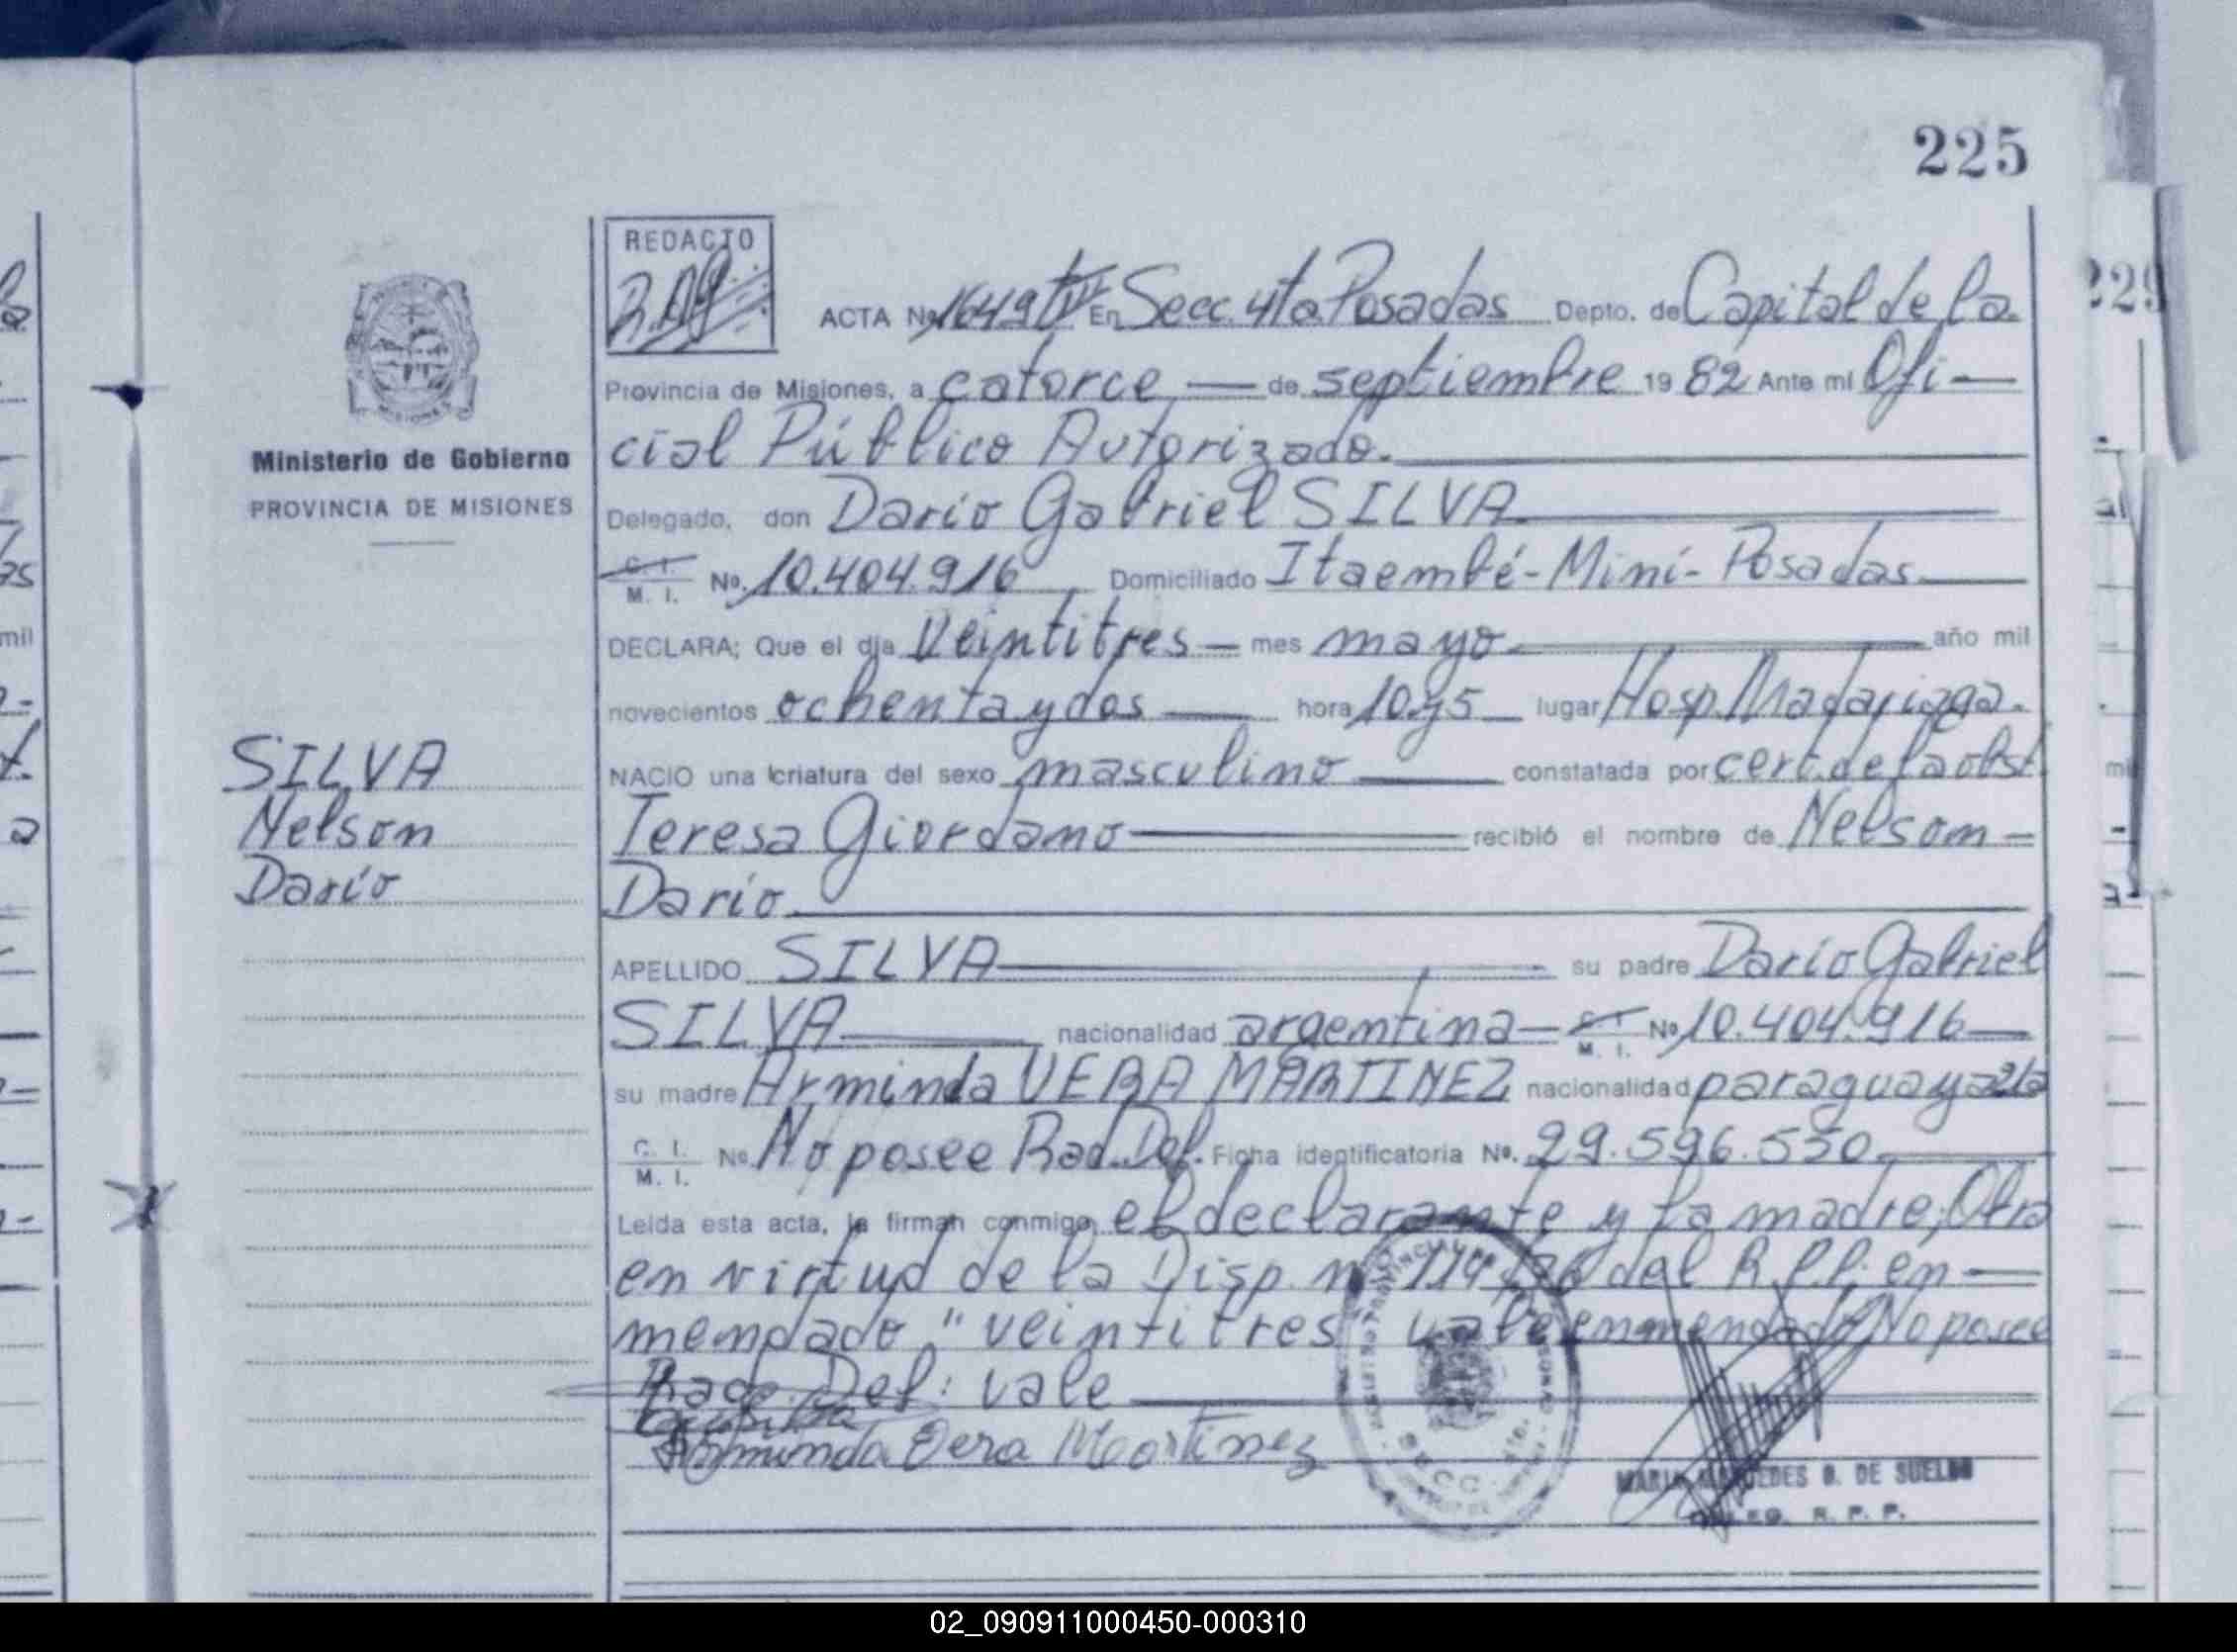 225
REDACTO
ACTA No 1649 En Secc. 4ta. Posadas Depto. de Capital de la
Provincia de Misiones, a catorce — de septiembre 1982 Ante mi Ofi—
cial Público Autorizado.
Ministerio de Gobierno
PROVINCIA DE MISIONES
Delegado, don Darío Gabriel SILVA
C. I. M. I. No. 10.404.916 Domiciliado Itaembé-Miní-Posadas
DECLARA; Que el día Veintitres — mes mayo año mil
novecientos ochenta y dos hora 10 y 5 lugar Hosp. Madariaga.
NACIO una criatura del sexo masculino constatada por cert. de la obst.
Teresa Giordano recibió el nombre de Nelson —
Darío
SILVA
Nelson
Darío
APELLIDO SILVA su padre Darío Gabriel
SILVA nacionalidad argentina — C. I. M. I. No 10.404.916
su madre Arminda VERA MARTINEZ nacionalidad paraguaya
C. I. M. I. No. No posee Rad. Def. Ficha identificatoria No. 29.596.550
Leida esta acta, la firman conmigo, el declarante y la madre; Obra
en virtud de la Disp. del R.P.P. en—
mendado "veintitres" vale enmendado No posee
Rade. Def: vale
Arminda Vera Martinez
DE SUELDO
R. P. P.
02_090911000450-000310